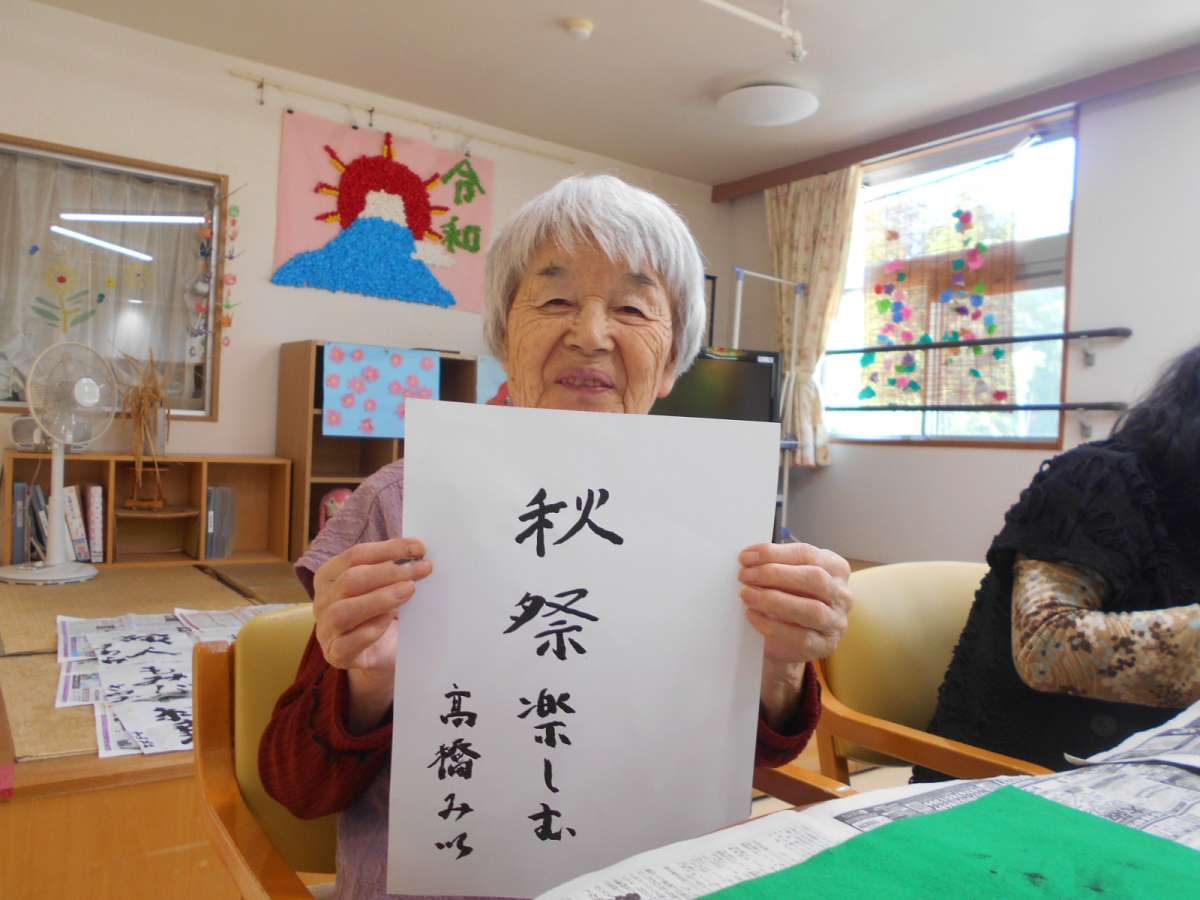 令和
秋祭楽しむ
高橋み以